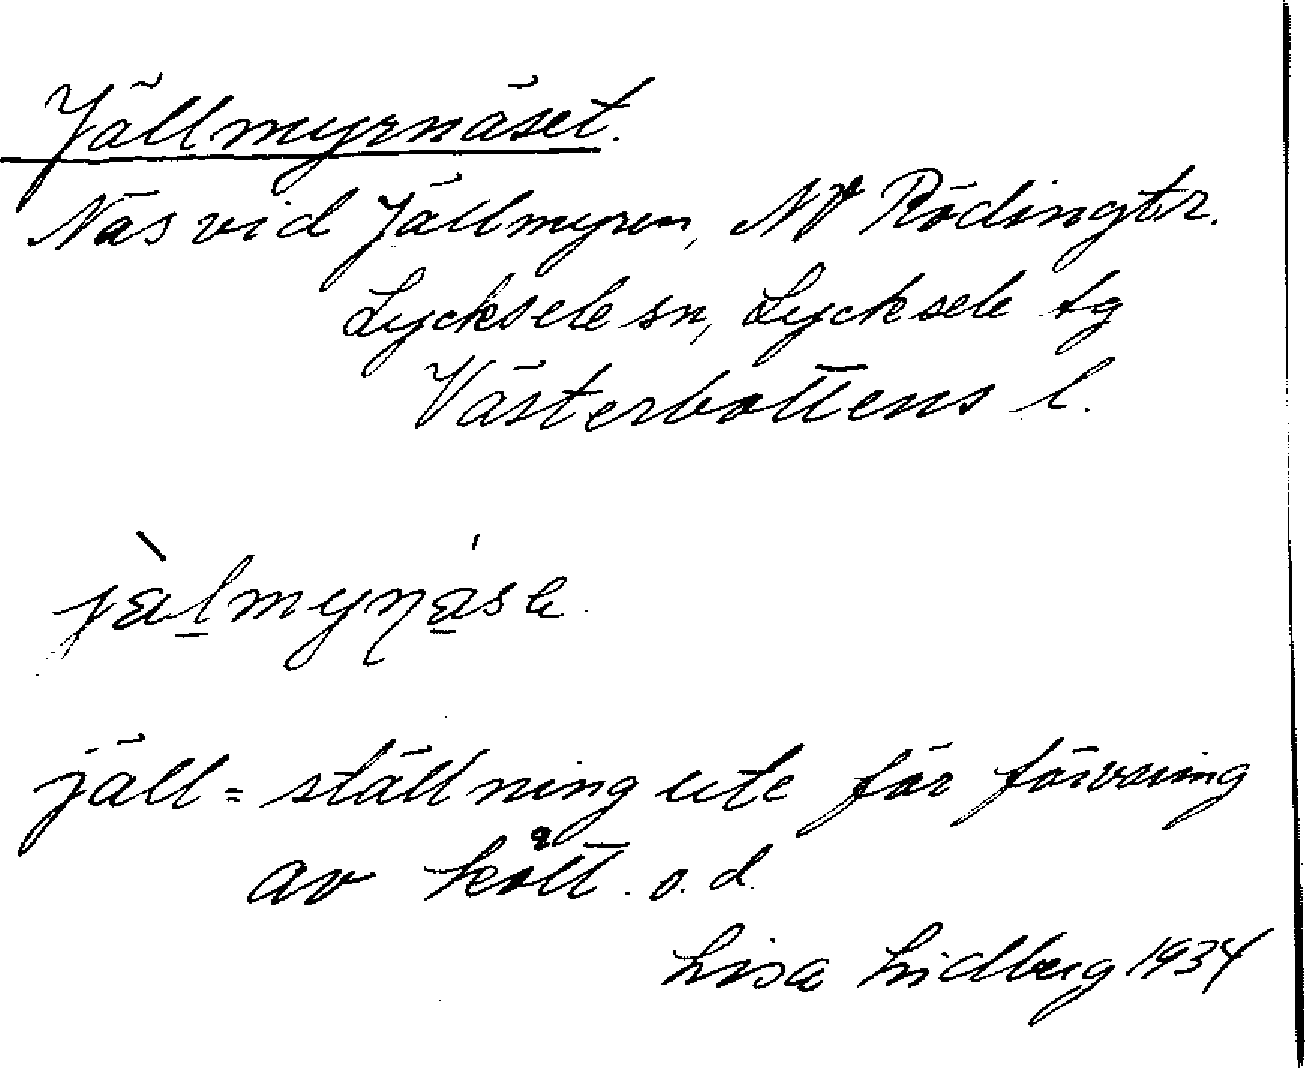 Jällmyrnäset.
Näs vid Jällmyren, NV Rödingtr.
Lycksele sn, Lycksele tg
Västerbottens l.
jäll = ställning ute för förvaring
av kött o.d.
Lisa Lidberg 1934